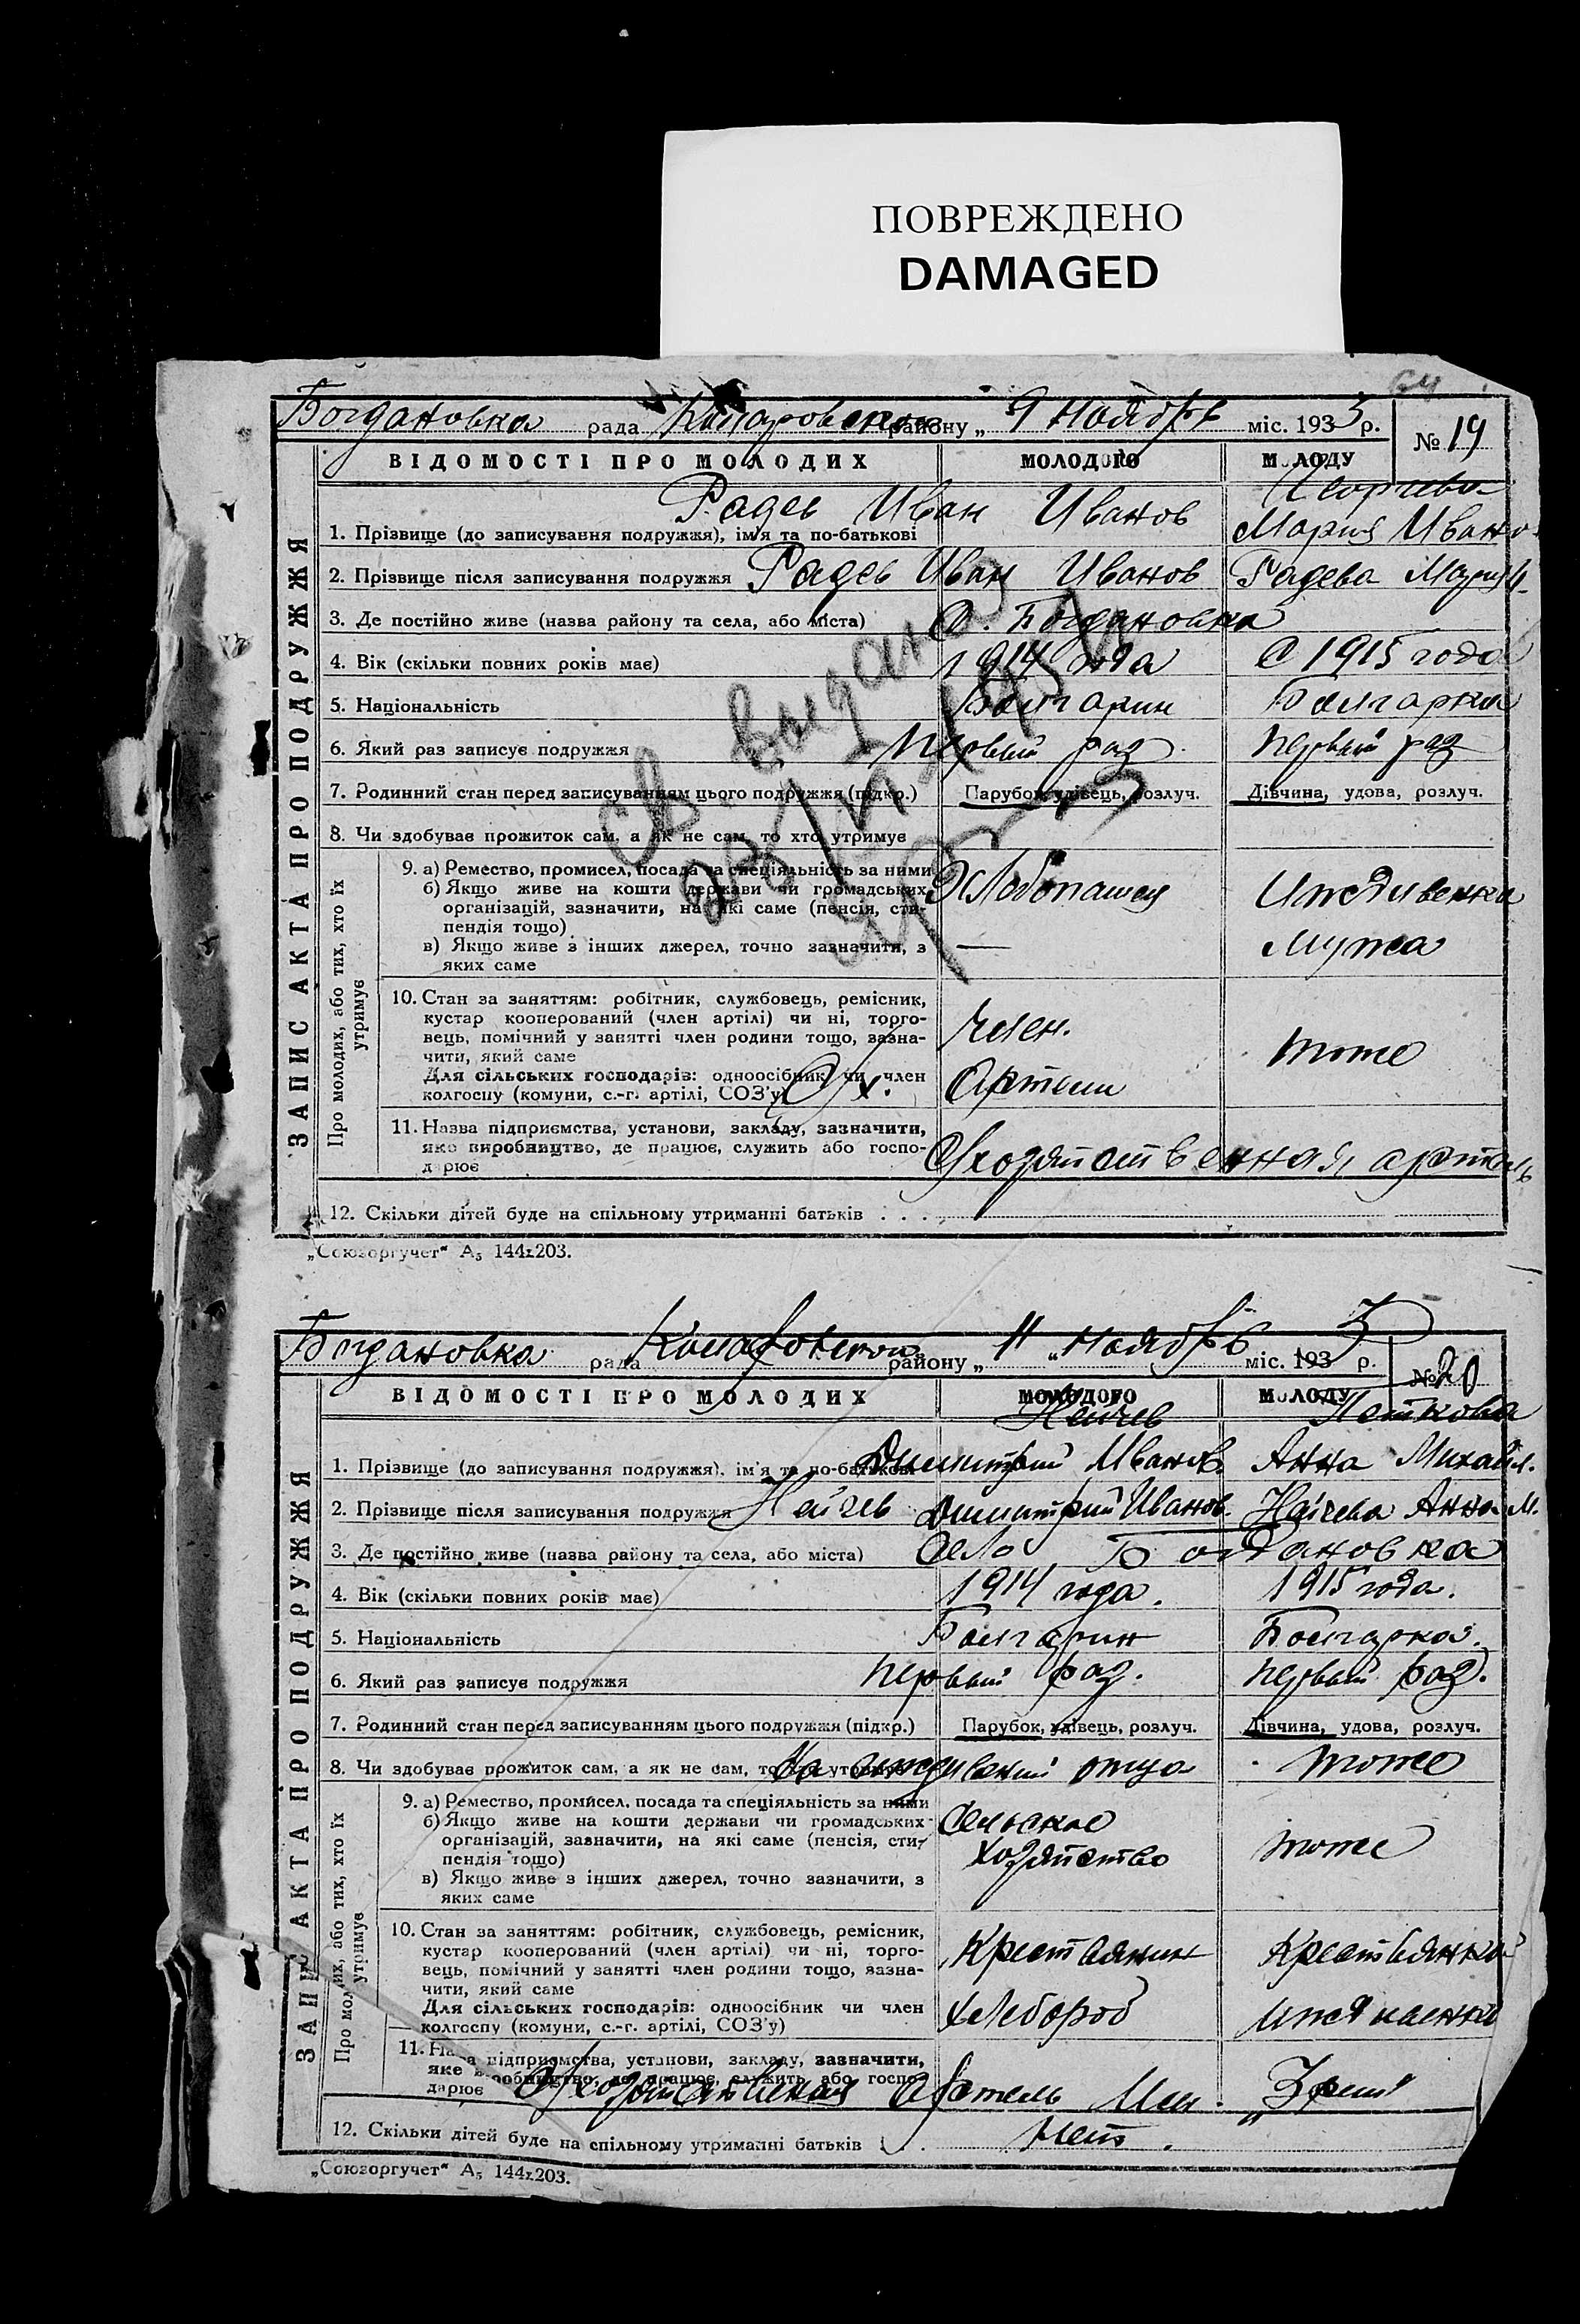 ПОВРЕЖДЕНО
DAMAGED
64
Богдановка рада Коларовского району „ 9 Ноябрь міс. 1933 р. № 19
ВІДОМОСТІ ПРО МОЛОДИХ МОЛОДОГО МОЛОДУ
ЗАПИС АКТА ПРО ПОДРУЖЖЯ
Георгиева
Радев Иван Иванов
1. Прізвище (до записування подружжя), ім'я та по-батькові Мария Ивано.
2. Прізвище після записування подружжя Радев Иван Иванов Радева Мария И.
3. Де постійно живе (назва району та села, або міста) С. Богдановка
4. Вік (скільки повних років має) 1914 года С 1915 года
5. Національність Болгарин Болгарка
6. Який раз записує подружжя Первый раз Первый раз
7. Родинний стан перед записуванням цього подружжя (підкр.) Парубок, удівець, розлуч. Дівчина, удова, розлуч.
8. Чи здобуває прожиток сам, а як не сам, то хто утримує
Про молодих, або тих, хто їх утримує
9. а) Ремество, промисел, посада та спеціяльність за ними
б) Якщо живе на кошти держави чи громадських Хлебопашец Иждивенка
організацій, зазначити, на які саме (пенсія, сти-
пендія тощо)
в) Якщо живе з інших джерел, точно зазначити, з — Мужа
яких саме
10. Стан за заняттям: робітник, службовець, ремісник,
кустар кооперований (член артілі) чи ні, торго- Член.
вець, помічний у занятті член родини тощо, зазна-
чити, який саме тоже
Для сільських господарів: одноосібник чи член
колгоспу (комуни, с.-г. артілі, СОЗ'у) Артели
11. Назва підприємства, установи, закладу, зазначити,
яке виробництво, де працює, служить або госпо-
дарює С/хозяйственная артель
12. Скільки дітей буде на спільному утриманні батьків . . .
„Союзоргучет“ А₅ 144х203.
Св. выдано
Богдановка рада Коларовского району „ 11 „ Ноябрь міс. 1933 р. № 20
ВІДОМОСТІ ПРО МОЛОДИХ МОЛОДОГО МОЛОДУ
ЗАПИС АКТА ПРО ПОДРУЖЖЯ
Нейчев Петкова
1. Прізвище (до записування подружжя), ім'я та по-батькові Димитрий Иванов. Анна Михайл.
2. Прізвище після записування подружжя Нейчев Димитрий Иванов. Нейчева Анна М.
3. Де постійно живе (назва району та села, або міста) Село Богдановка
4. Вік (скільки повних років має) 1914 года. 1915 года.
5. Національність Болгарин Болгарка.
6. Який раз записує подружжя Первый раз. Первый раз.
7. Родинний стан перед записуванням цього подружжя (підкр.) Парубок, удівець, розлуч. Дівчина, удова, розлуч.
8. Чи здобуває прожиток сам, а як не сам, то хто утримує На иждивении отца тоже
Про молодих, або тих, хто їх утримує
9. а) Ремество, промисел, посада та спеціяльність за ними
б) Якщо живе на кошти держави чи громадських Сельское
організацій, зазначити, на які саме (пенсія, сти- тоже
пендія тощо) хозяйство
в) Якщо живе з інших джерел, точно зазначити, з
яких саме
10. Стан за заняттям: робітник, службовець, ремісник,
кустар кооперований (член артілі) чи ні, торго- Крестьянин Крестьянка
вець, помічний у занятті член родини тощо, зазна-
чити, який саме
Для сільських господарів: одноосібник чи член хлебороб
колгоспу (комуни, с.-г. артілі, СОЗ'у)
11. Назва підприємства, установи, закладу, зазначити,
яке виробництво, де працює, служить або госпо-
дарює С/хозяйственная Артель Им.
12. Скільки дітей буде на спільному утриманні батьків . . . Нет.
„Союзоргучет“ А₅ 144х203.